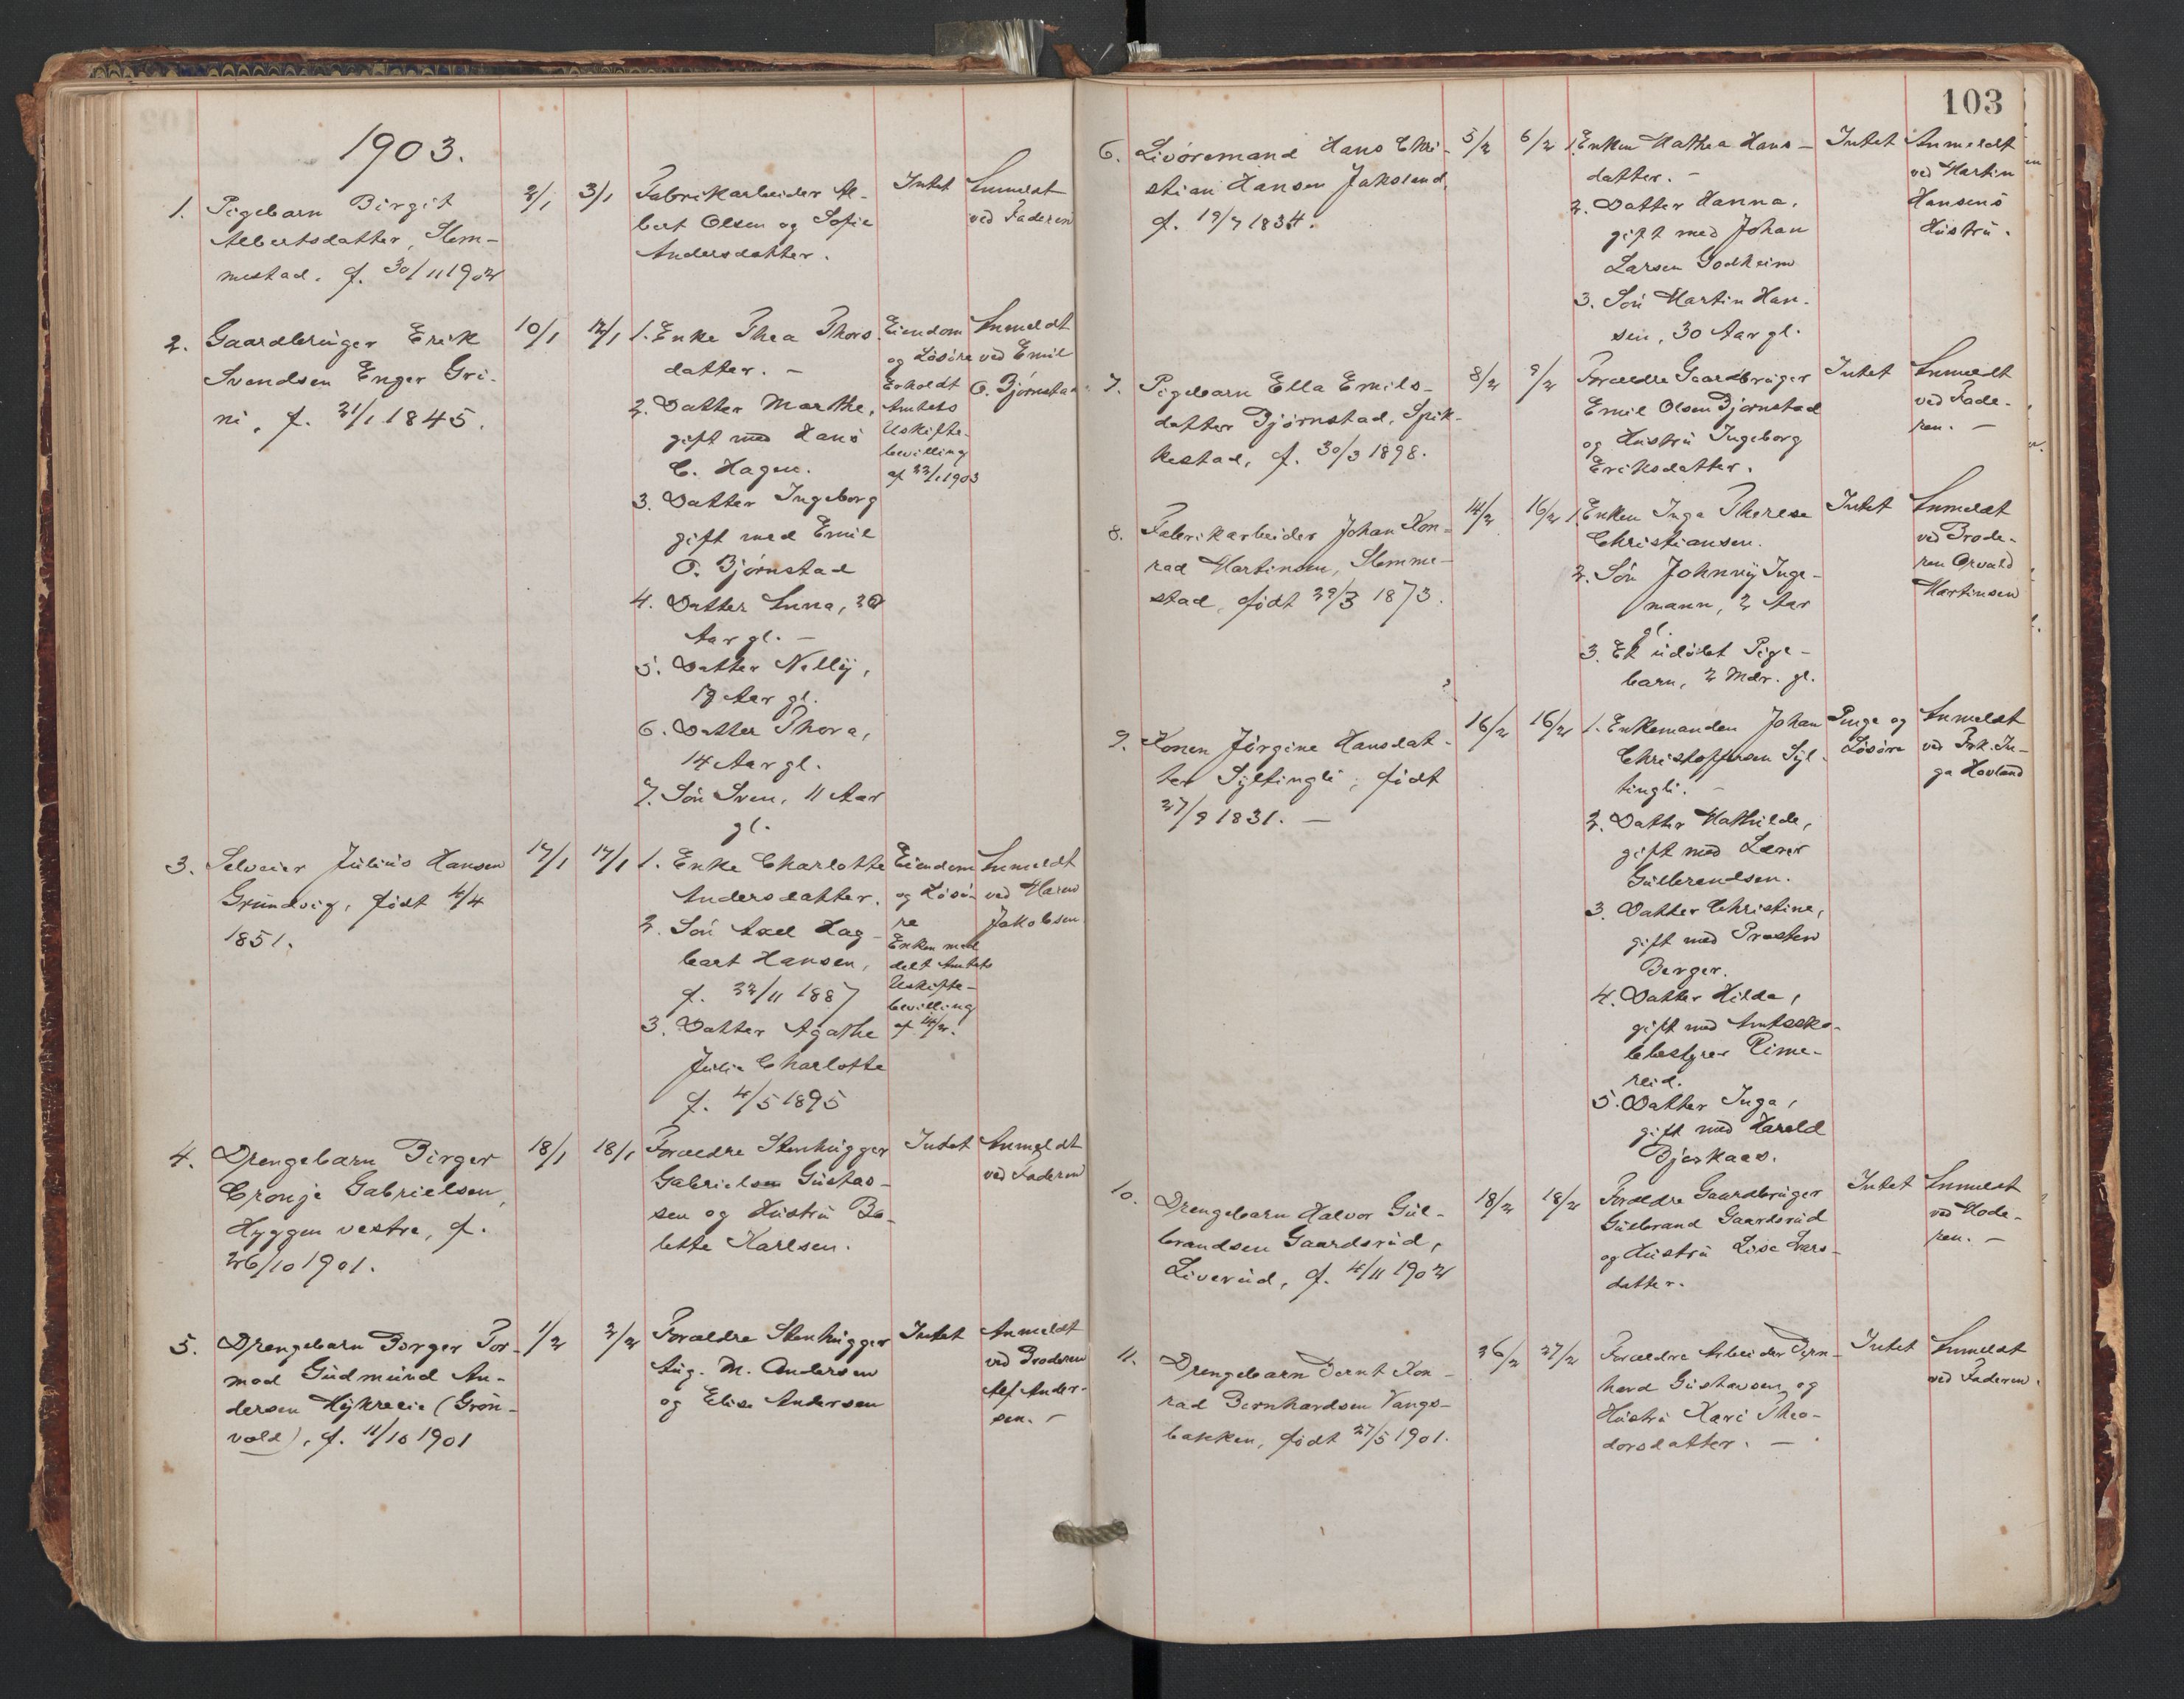 1903.
1. Pigebarn Birgit
Albertsdatter, Slem-
mestad. f. 30/11 1902
2/1
3/1
Fabrikarbeider Al-
bert Olsen og Sofie
Andersdatter.
Intet
Anmeldt
ved Faderen
2. Gaardbruger Erik
Svendsen Enger Gri-
ni, f. 21/1 1845.
10/1
12/1
1. Enke Thea Thors
datter. -
2. Datter Marthe,
gift med Hans
C. Hagen.
3. Datter Ingeborg
gift med Emil
O. Bjørnstad
4. Datter Anna, 20
Aar gl. -
5. Datter Nelly,
17 Aar gl.
6. Datter Thora,
14 Aar gl.
7. Søn Sven, 11 Aar
gl.
Eiendom
og Løsøre
Erholdt
Amtets
Uskifte-
bevilling
af 22/1 1903
Anmeldt
ved Emil
O. Bjørnstad
3. Selveier Julius Hansen
Grundvig, født 4/4
1851.
17/1
17/1
1. Enke Charlotte
Andersdatter.
2. Søn Axel Hag-
bart Hansen,
f. 22/11 1887
3. Datter Agathe
Julie Charlotte
f. 4/5 1895
Eiendom
og Løsø-
re
Enken med
delt Amtets
Uskifte-
bevilling
af 14/2.
Anmeldt
ved Maren
Jakobsen
4. Drengebarn Birger
Cronje Gabrielsen,
Hyggen vestre, f.
26/10 1901.
18/1
18/1
Forældre Stenhugger
Gabrielsen Gustav-
sen og Hustru Bo-
lette Karlsen.
Intet
Anmeldt
ved Faderen
5. Drengebarn Borger Tor-
mod Gudmund An-
dersen Hykreie (Grøn-
vold), f. 11/10 1901
1/2
2/2
Forældre Stenhugger
Aug. M. Andersen
og Elise Andersen
Intet
Anmeldt
ved Broderen
Alf Ander-
sen. -
103
6. Livøremand Hans Chri-
stian Hansen Jakslend,
f. 19/7 1834.
5/2
6/2
1. Enken Mathea Hans-
datter. -
2. Datter Hanna,
gift med Johan
Larsen Godheim
3. Søn Martin Han-
sen, 30 Aar gl.
Intet
Anmeldt
ved Martin
Hansens
Hustru.
7. Pigebarn Ella Emils-
datter Bjørnstad, Spik-
kestad, f. 30/3 1898.
8/2
9/2
Forældre Gaardbruger
Emil Olsen Bjørnstad
og Hustru Ingeborg
Eriksdatter.
Intet
Anmeldt
ved Fade-
ren. -
8. Fabrikarbeider Johan Kon-
rad Martinsen, Slemme-
stad, født 29/3 1873.
14/2
16/2
1. Enken Inga Therese
Christiansen.
2. Søn Johnny Inge-
mann, 2 Aar
gl.
3. Et udøbt Pige-
barn, 2 Mdr. gl.
Intet
Anmeldt
ved Brode-
ren Arvald
Martinsen
9. Konen Jørgine Hansdat-
ter Syltingli, født
27/9 1831. -
16/2
16/2
1. Enkemanden Johan
Christoffersen Syl-
tingli. -
2. Datter Mathilde,
gift med Lærer
Gulbrandsen.
3. Datter Christine,
gift med Presten
Berger.
4. Datter Hilda,
gift med Amtssko-
lebestyrer Rime-
reid.
5. Datter Inga,
gift med Harald
Bjerkaas.
Penge og
Løsøre
Anmeldt
ved Frk. In-
ga Hovland
10. Drengebarn Halvor Gul-
brandsen Gaardsrud,
Liverud, f. 4/11 1902
18/2
18/2
Forældre Gaardbruger
Gulbrand Gaardsrud
og Hustru Lise Lars-
datter.
Intet
Anmeldt
ved Mode-
ren. -
11. Drengebarn Bernt Kon-
rad Bernhardsen Vangs-
bakken, født 27/5 1901.
26/2
27/2
Forældre Arbeider Bern-
hard Gustavsen og
Hustru Kari Theo-
dorsdatter. -
Intet
Anmeldt
ved Faderen.